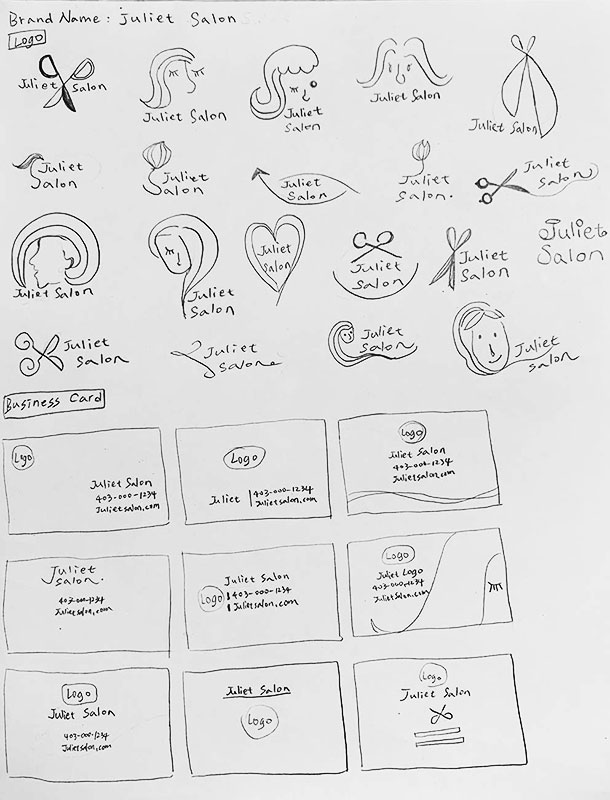 Brand Name: Juliet Salon
Logo
Juliet Salon
Juliet Salon
Juliet
Salon
Juliet Salon
Juliet Salon
Juliet
Salon
Juliet
Salon
Juliet
Salon
Juliet
Salon.
Juliet
Salon
Juliet Salon
Juliet
Salon
Juliet
Salon
Juliet
Salon
Juliet
Salon
Juliet
Salon
Juliet
Salon
Juliet
Salon
Juliet
Salon
Juliet
Salon
Business Card
Logo
Juliet Salon
403-000-1234
Julietsalon.com
Logo
Juliet
403-000-1234
Julietsalon.com
Logo
Juliet Salon
403-000-1234
Julietsalon.com
Juliet
Salon.
403-000-1234
Julietsalon.com
Logo
Juliet Salon
403-000-1234
Julietsalon.com
Logo
Juliet Logo
403-000-1234
Julietsalon.com
Logo
Juliet Salon
403-000-1234
Julietsalon.com
Juliet Salon
Logo
Logo
Juliet Salon